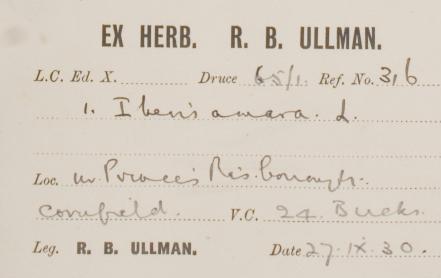 EX HERB. R. B. ULLMAN.
L.C. Ed. X. Druce 65/1. Ref. No. 316
1. Iberis amara. L.
Loc. nr Princes Risborough.
Cornfield. V.C. 24. Bucks.
Leg. R. B. ULLMAN. Date 27.IX.30.